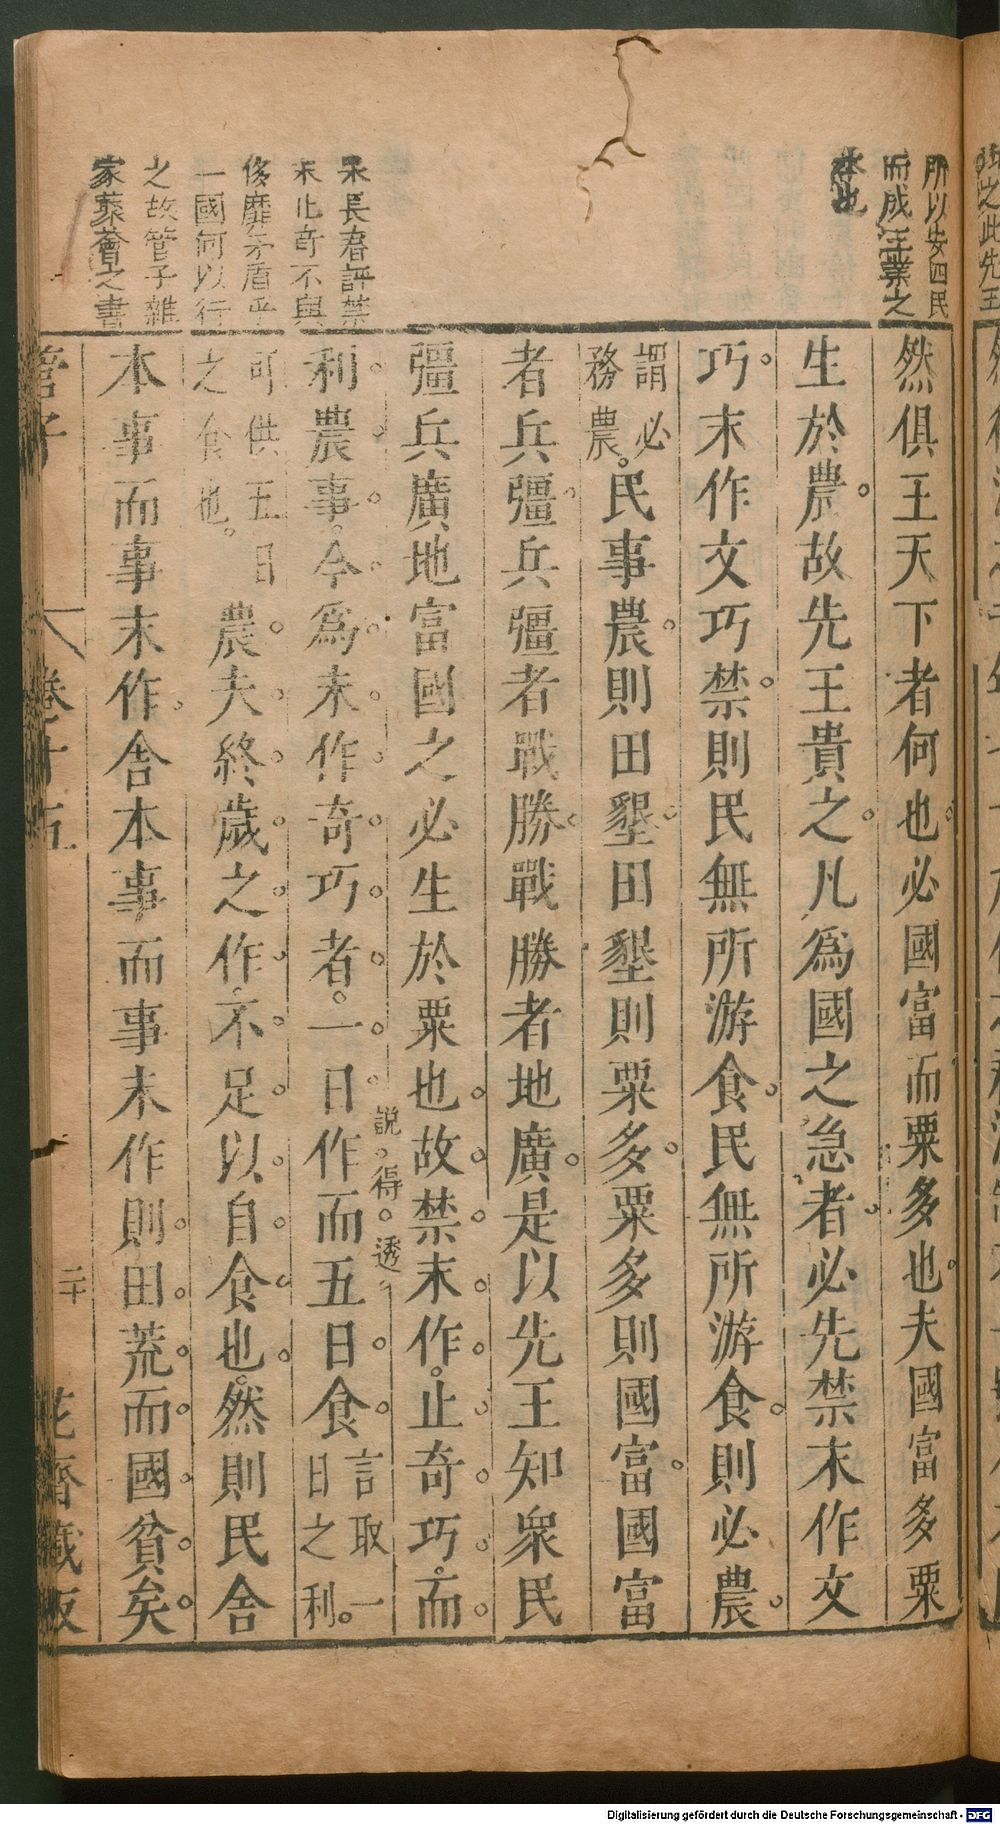 所以安四民
而成王業之
本也
朱長春評禁
末止奇不與
侈靡矛盾乎
一國何以行
之故管子雜
家蘂薈之書
然俱王天下者何也必國富而粟多也夫國富多粟
生於農故先王貴之凡爲國之急者必先禁末作文
巧末作文巧禁則民無所游食民無所游食則必農
謂必
務農
民事農則田墾田墾則粟多粟多則國富國富
者兵彊兵彊者戰勝戰勝者地廣是以先王知衆民
彊兵廣地富國之必生於粟也故禁末作止奇巧而
說得透
利農事今爲末作奇巧者一日作而五日食
言取一
日之利
可供五日
之食也
農夫終歲之作不足以自食也然則民舍
本事而事末作舍本事而事末作則田荒而國貧矣
管子
卷十五
二十
花齋藏板
Digitalisierung gefördert durch die Deutsche Forschungsgemeinschaft - DFG